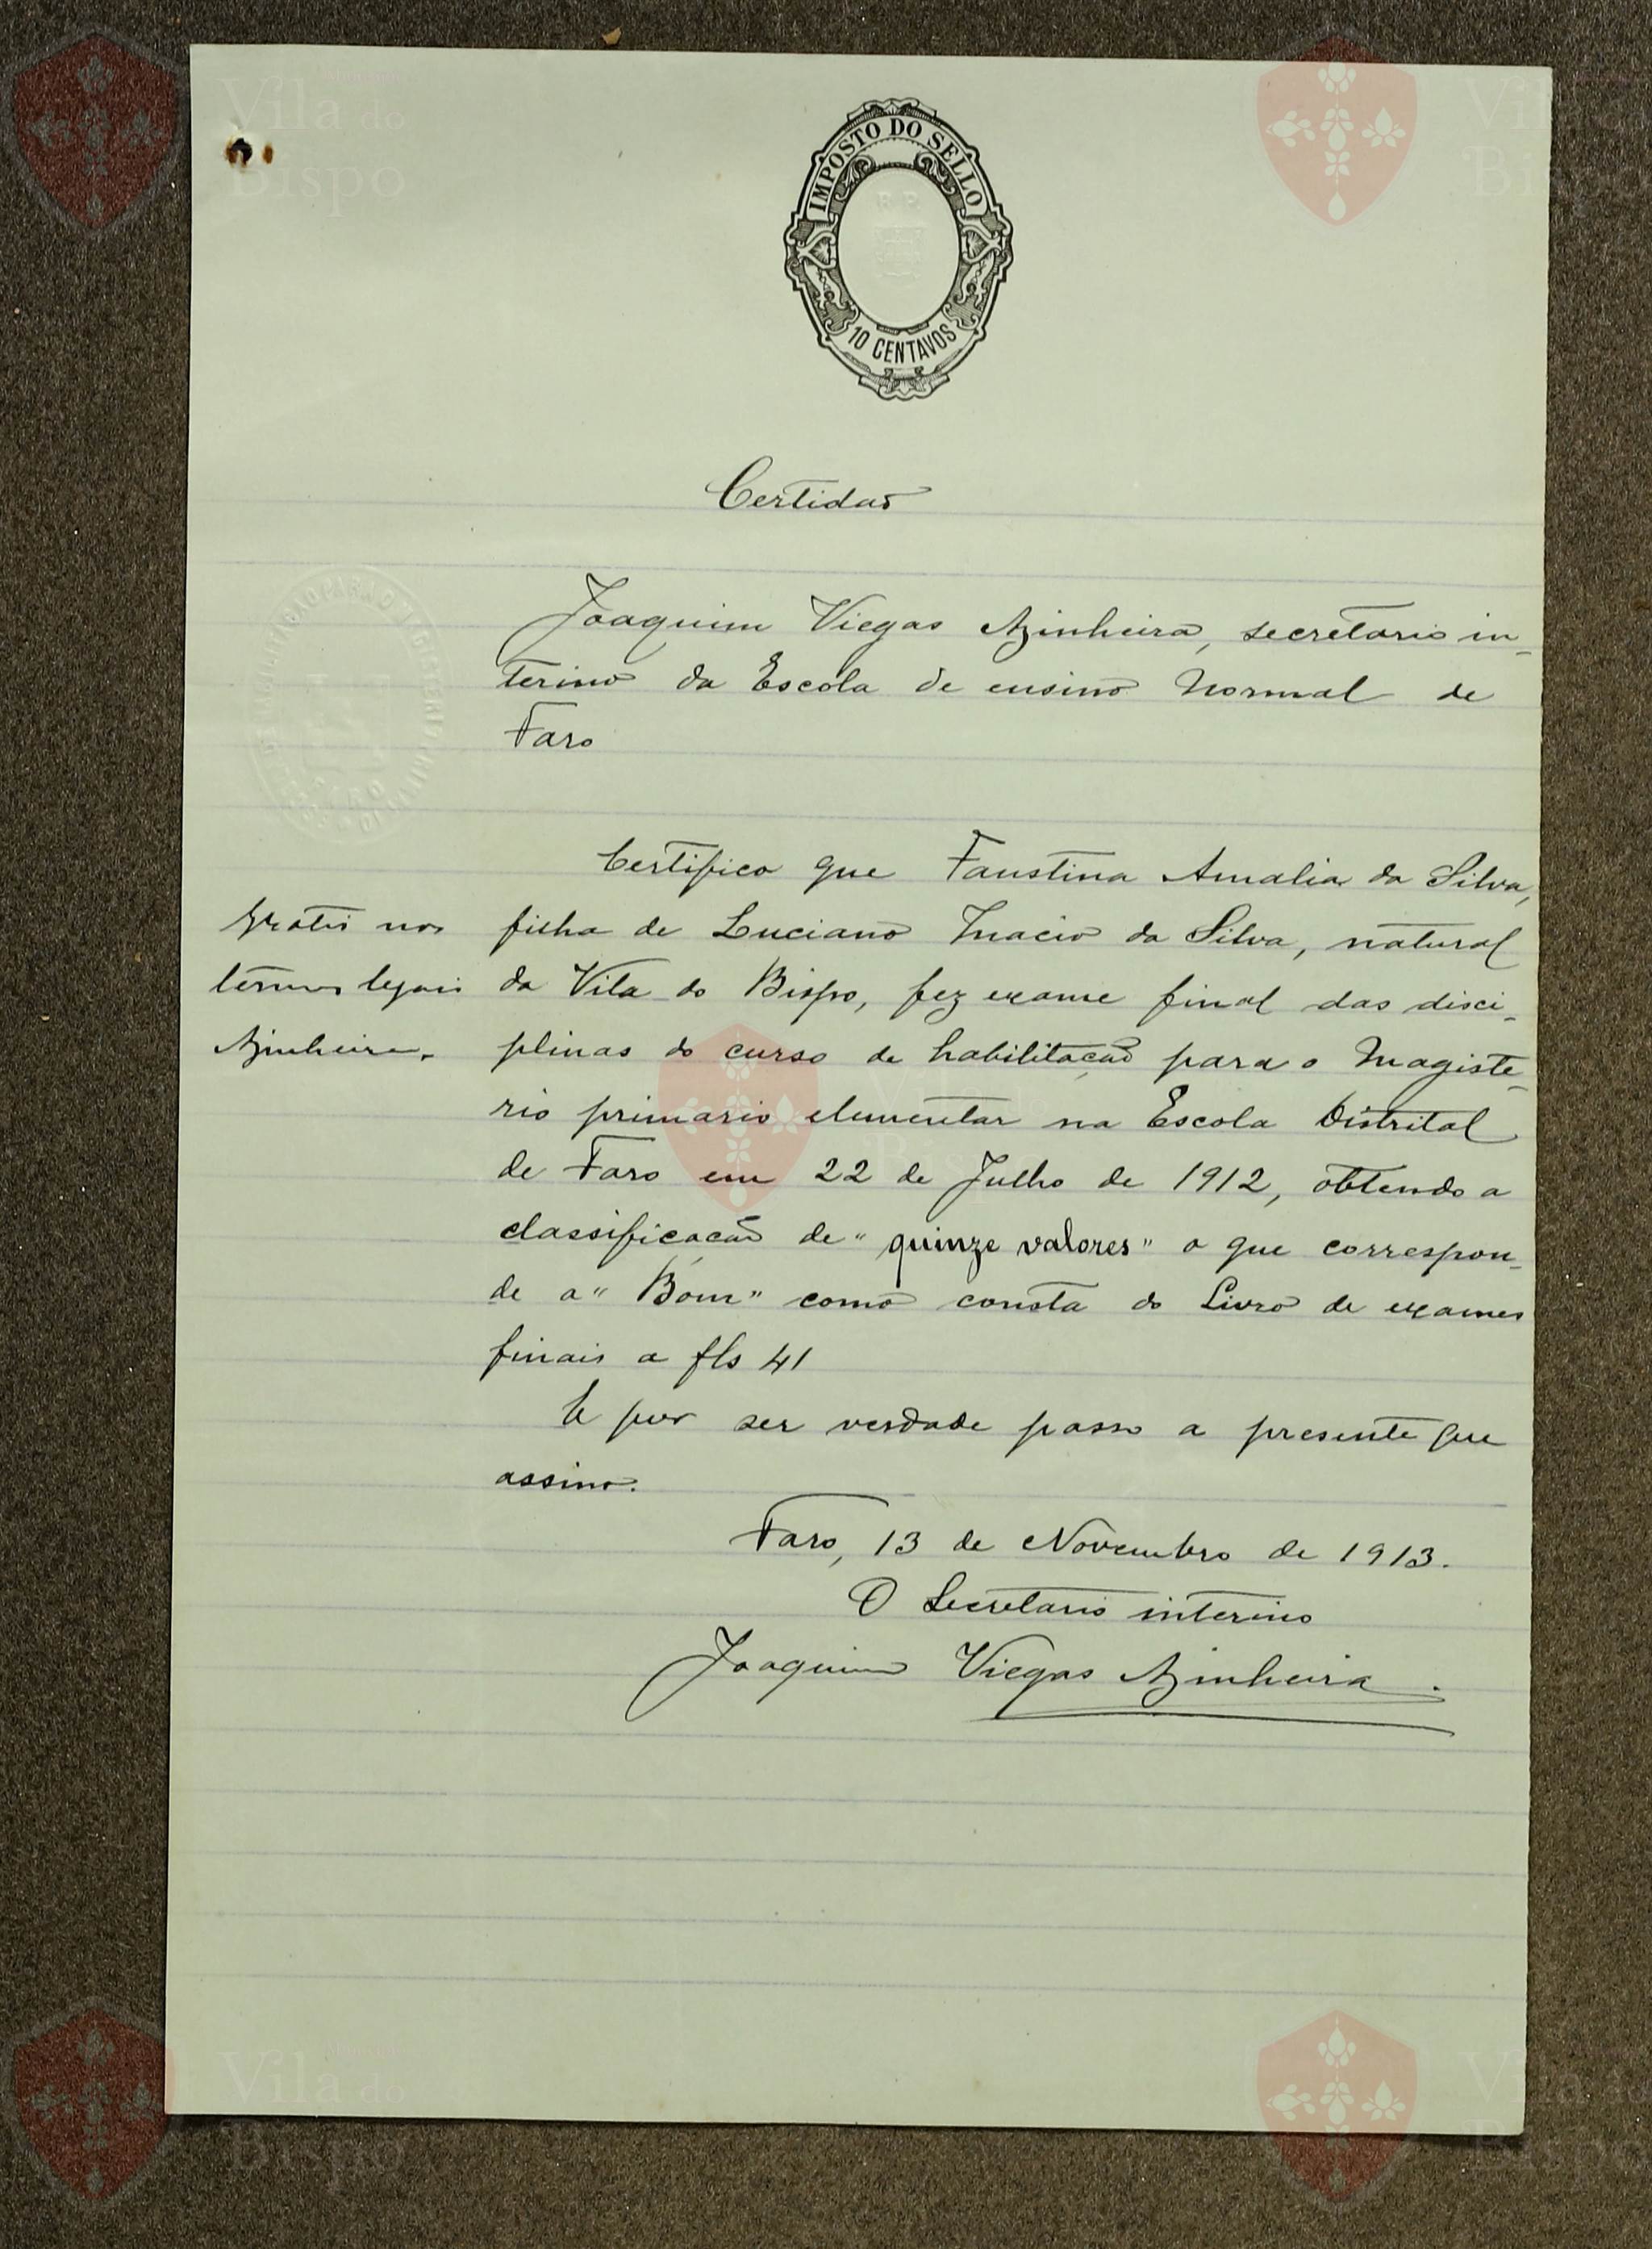 IMPOSTO DO SELLO
10 CENTAVOS
Certidão
Joaquim Viegas Azinheira, secretario in-
terino da Escola de ensino Normal de
Faro
Certifico que Faustina Amalia da Silva,
filha de Luciano Inacio da Silva, natural
da Vila do Bispo, fez exame final das disci-
plinas do curso de habilitação para o Magiste-
rio primario elementar na Escola Distrital
de Faro em 22 de Julho de 1912, obtendo a
classificação de "quinze valores" o que correspon-
de a "Bom" como consta do Livro de exames
finais a fls 41
E por ser verdade passo a presente que
assino.
Gratis nos
termos legais
Azinheira.
Faro, 13 de Novembro de 1913.
O Secretario interino
Joaquim Viegas Azinheira.
Vila do
Bispo
Vila do
Bispo